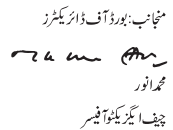 منجانب: بورڈ آف ڈائریکٹرز
محمد انور
چیف ایگزیکٹو آفیسر